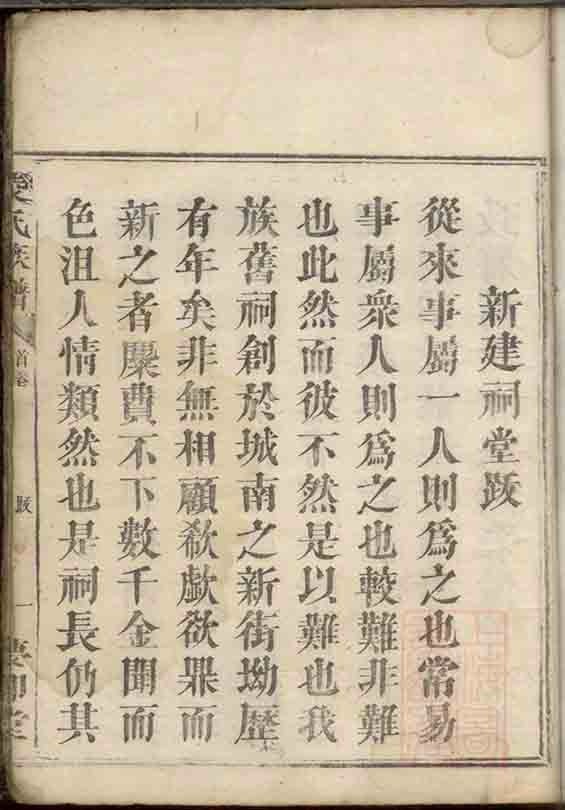 新建祠堂跋
從來事屬一人則爲之也常易
事屬衆人則爲之也較難非難
也此然而彼不然是以難也我
族舊祠創於城南之新街坳歷
有年矣非無相顧欷歔欲鼎而
新之者縻費不下數千金聞而
色沮人情類然也是祠長仍其
氏族譜
首卷
跋
一